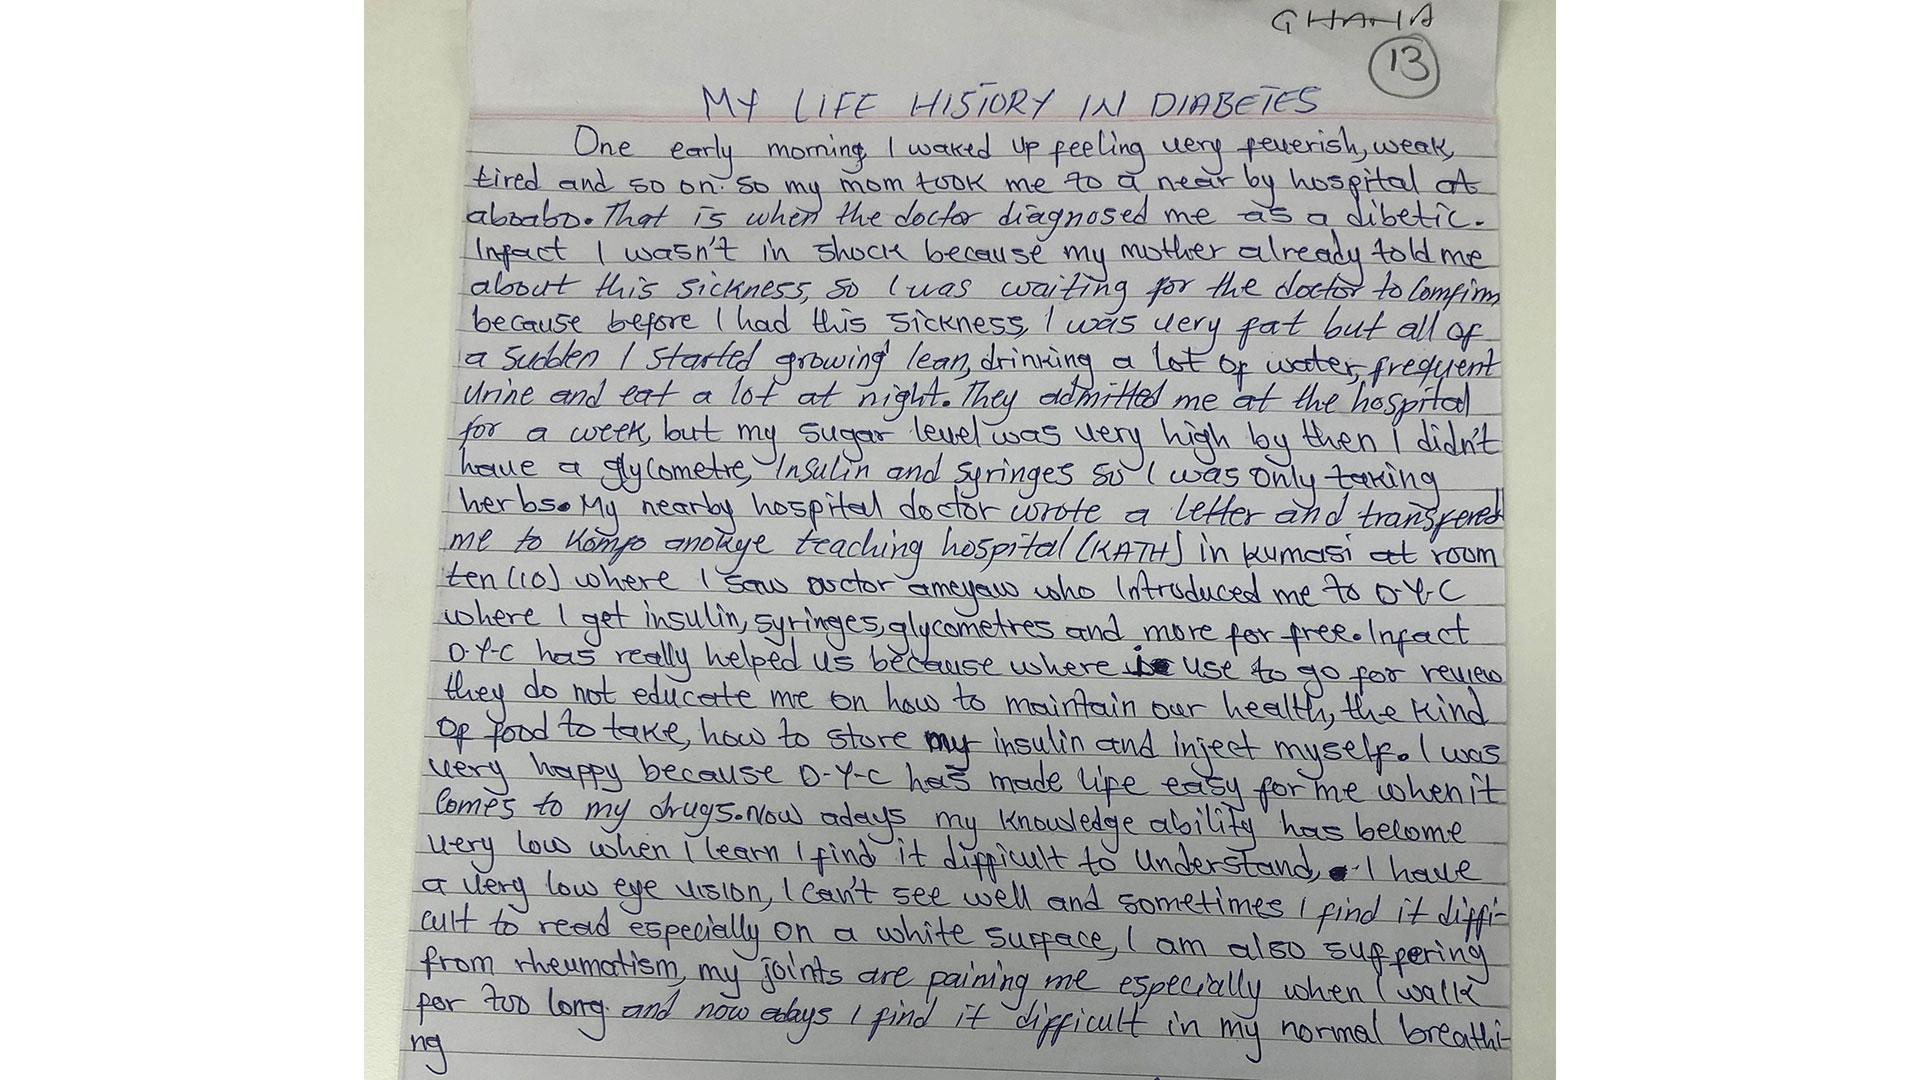 GHANA
13
MY LIFE HISTORY IN DIABETES
One early morning, I waked up feeling very feverish, weak,
tired and so on. So my mom took me to a near by hospital at
aboabo. That is when the doctor diagnosed me as a dibetic.
Infact I wasn't in shock because my mother already told me
about this sickness, so I was waiting for the doctor to Comfirm
because before I had this sickness, I was very fat but all of
a sudden I started growing lean, drinking a lot of water, frequent
urine and eat a lot at night. They admitted me at the hospital
for a week, but my sugar level was very high by then I didn't
have a glycometre, Insulin and syringes so I was only taking
herbs. My nearby hospital doctor wrote a letter and transfered
me to Komfo anokye teaching hospital (KATH) in kumasi at room
ten (10) where I saw doctor ameyaw who Introduced me to D-Y-C
where I get insulin, syringes, glycometres and more for free. Infact
D-Y-C has really helped us because where use to go for review
they do not educate me on how to maintain our health, the kind
of food to take, how to store my insulin and inject myself. I was
very happy because D-Y-C has made life easy for me when it
Comes to my drugs. Now adays my knowledge ability has become
very low when I learn I find it difficult to understand, I have
a very low eye vision, I can't see well and sometimes I find it diffi-
cult to read especially on a white surface, I am also suffering
from rheumatism, my joints are paining me especially when I walk
for too long. and now adays I find it difficult in my normal breathi-
ng